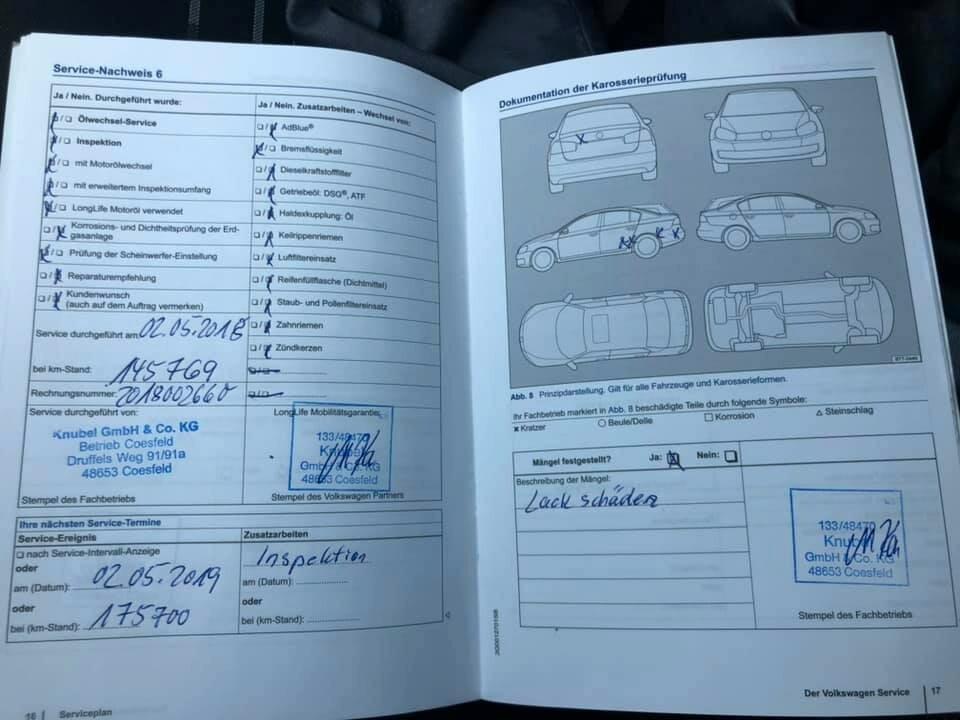 Service-Nachweis 6
Ja / Nein. Durchgeführt wurde:
Ölwechsel-Service
Inspektion
mit Motorölwechsel
mit erweitertem Inspektionsumfang
LongLife Motoröl verwendet
Korrosions- und Dichtheitsprüfung der Erd-
gasanlage
Prüfung der Scheinwerfer-Einstellung
Reparaturempfehlung
Kundenwunsch
(auch auf dem Auftrag vermerken)
Service durchgeführt am: 02.05.2018
bei km-Stand: 145769
Rechnungsnummer: 2018002660
Service durchgeführt von:
Knubel GmbH & Co. KG
Betrieb Coesfeld
Druffels Weg 91/91a
48653 Coesfeld
Stempel des Fachbetriebs
Ja / Nein. Zusatzarbeiten – Wechsel von:
AdBlue®
Bremsflüssigkeit
Dieselkraftstofffilter
Getriebeöl: DSG®, ATF
Haldexkupplung: Öl
Keilrippenriemen
Luftfiltereinsatz
Reifenfüllflasche (Dichtmittel)
Staub- und Pollenfiltereinsatz
Zahnriemen
Zündkerzen
LongLife Mobilitätsgarantie
133/48470
Knubel
GmbH & Co. KG
48653 Coesfeld
Stempel des Volkswagen Partners
Ihre nächsten Service-Termine
Service-Ereignis
nach Service-Intervall-Anzeige
oder
am (Datum): 02.05.2019
oder
bei (km-Stand): 175700
Zusatzarbeiten
Inspektion
am (Datum):
oder
bei (km-Stand):
16 Serviceplan
Dokumentation der Karosserieprüfung
Abb. 8 Prinzipdarstellung. Gilt für alle Fahrzeuge und Karosserieformen.
Ihr Fachbetrieb markiert in Abb. 8 beschädigte Teile durch folgende Symbole:
x Kratzer ○ Beule/Delle □ Korrosion △ Steinschlag
Mängel festgestellt? Ja: Nein:
Beschreibung der Mängel:
Lackschäden
133/48470
Knubel
GmbH & Co. KG
48653 Coesfeld
Stempel des Fachbetriebs
Der Volkswagen Service 17